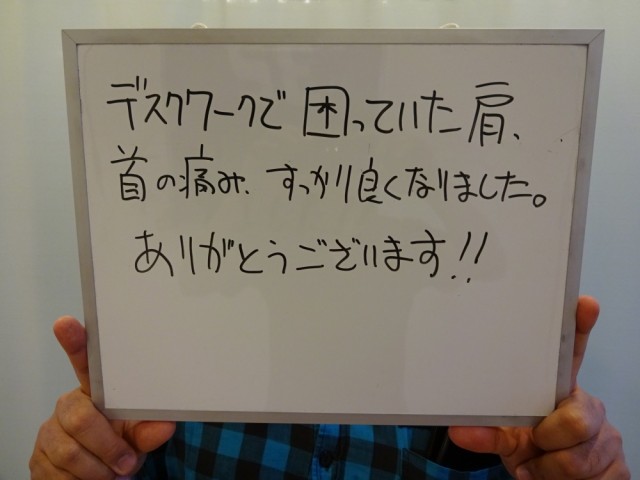 デスクワークで困っていた肩、
首の痛み、すっかり良くなりました。
ありがとうございます!!